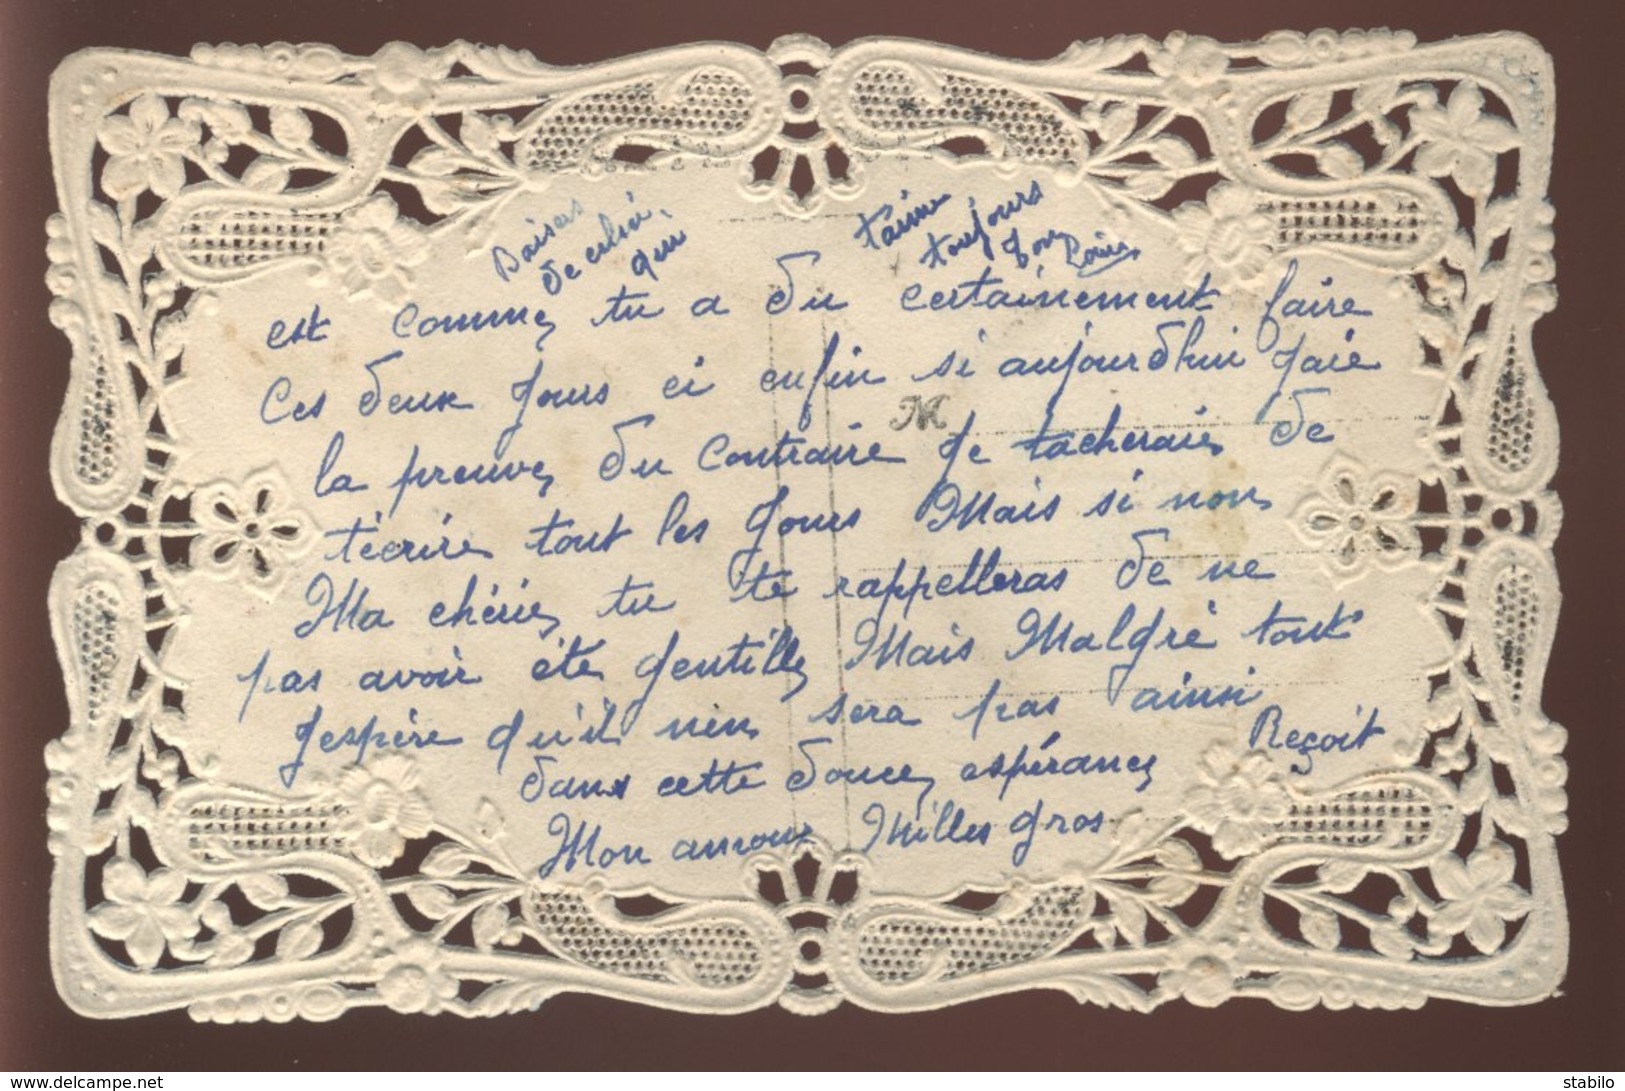 est comme tu a du certainement faire
Ces deux jours ci enfin si aujourdhui jaie
la preuve du Contraire je tacherais de
técrire tout les jours Mais si non
Ma chérie tu te rappelleras de ne
pas avoir été gentille Mais Malgrè tout
jespère qu'il nen sera pas ainsi
dans cette douce espérance Reçoit
Mon amour Milles gros
Baisers
de celui
qui
taime
toujours
Ton Louis
M
www.delcampe.net
stabilo